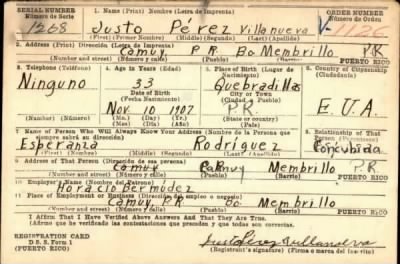 SERIAL NUMBER 1. Name (Print) Nombre (Letra de Imprenta) ORDER NUMBER
Número de Serie Número de Orden
1268 Justo Pérez Villanueva V-1126
(First) (Primer Nombre) (Middle) (Segundo) (Last) (Apellido)
2. Address (Print) Dirección (Letra de Imprenta)
Camuy P.R. Bo Membrillo P.R
(Number and street) (Número y calle) (Town) (Pueblo) (Barrio) PUERTO RICO
3. Telephone (Teléfono) 4. Age in Years (Edad) 5. Place of Birth (Lugar de Nacimiento) 6. Country of Citizenship (Ciudadanía)
Ninguno 33 Quebradillas
Date of Birth (Fecha Nacimiento) City or Town (Ciudad o Pueblo)
Nov 10 1907 PR E.U.A.
(Mo.) (Day) (Yr.) (State or country)
(Mes) (Día) (Año) (Estado o país)
7. Name of Person Who Will Always Know Your Address (Nombre de la Persona que siempre sabrá su dirección) 8. Relationship of That Person
Esperanza Rodríguez Concubina
(First) (Primer Nombre) (Middle) (Segundo) (Last) (Apellido)
9. Address of That Person (Dirección de esa persona)
Camuy Camuy Membrillo P.R
(Number and street) (Número y calle) (Town) (Pueblo) (Barrio) PUERTO RICO
10. Employer's Name (Nombre del Patrono)
Horacio Bermudez
11. Place of Employment or Business (Dirección del empleo o negocio)
Camuy, P.R. Bo. Membrillo
(Number and street) (Número y calle) (Town) (Pueblo) (Barrio) PUERTO RICO
I Affirm That I Have Verified Above Answers And That They Are True.
(Afirmo que he verificado las contestaciones que preceden y que todas son correctas).
REGISTRATION CARD
D. S. S. Form 1
(PUERTO RICO)
Justo Pérez Villanueva
(Registrant's signature) (Firma o marca del inscrito)